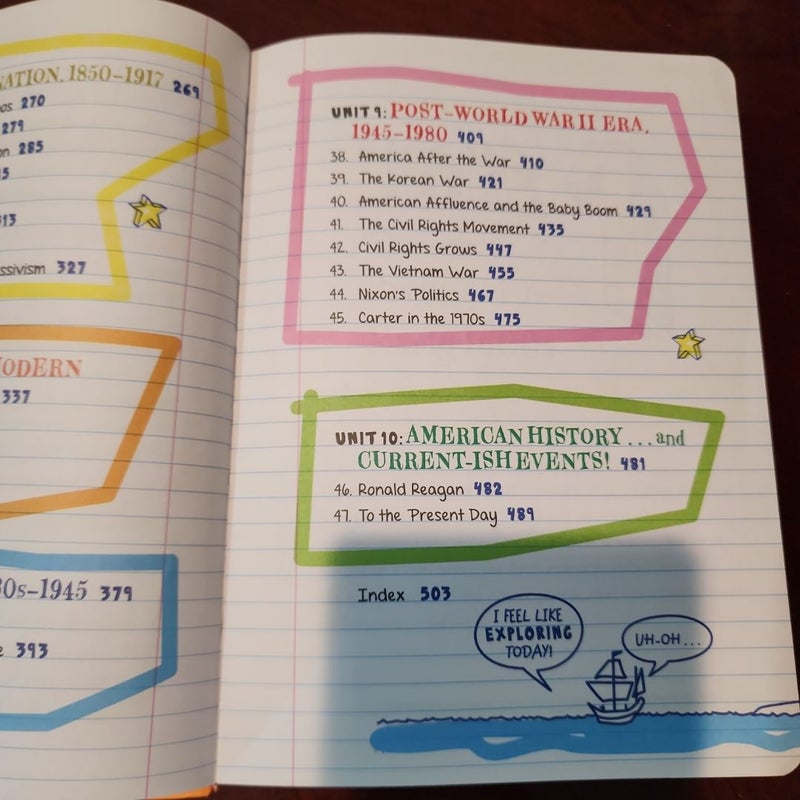 NATION, 1850–1917 269
270
279
285
327
ODERN
337
0s–1945 379
393
UNIT 9: POST–WORLD WAR II ERA,
1945–1980 409
38. America After the War 410
39. The Korean War 421
40. American Affluence and the Baby Boom 429
41. The Civil Rights Movement 435
42. Civil Rights Grows 447
43. The Vietnam War 455
44. Nixon's Politics 467
45. Carter in the 1970s 475
UNIT 10: AMERICAN HISTORY . . . and
CURRENT-ISH EVENTS! 481
46. Ronald Reagan 482
47. To the Present Day 489
Index 503
I FEEL LIKE
EXPLORING
TODAY!
UH-OH . . .